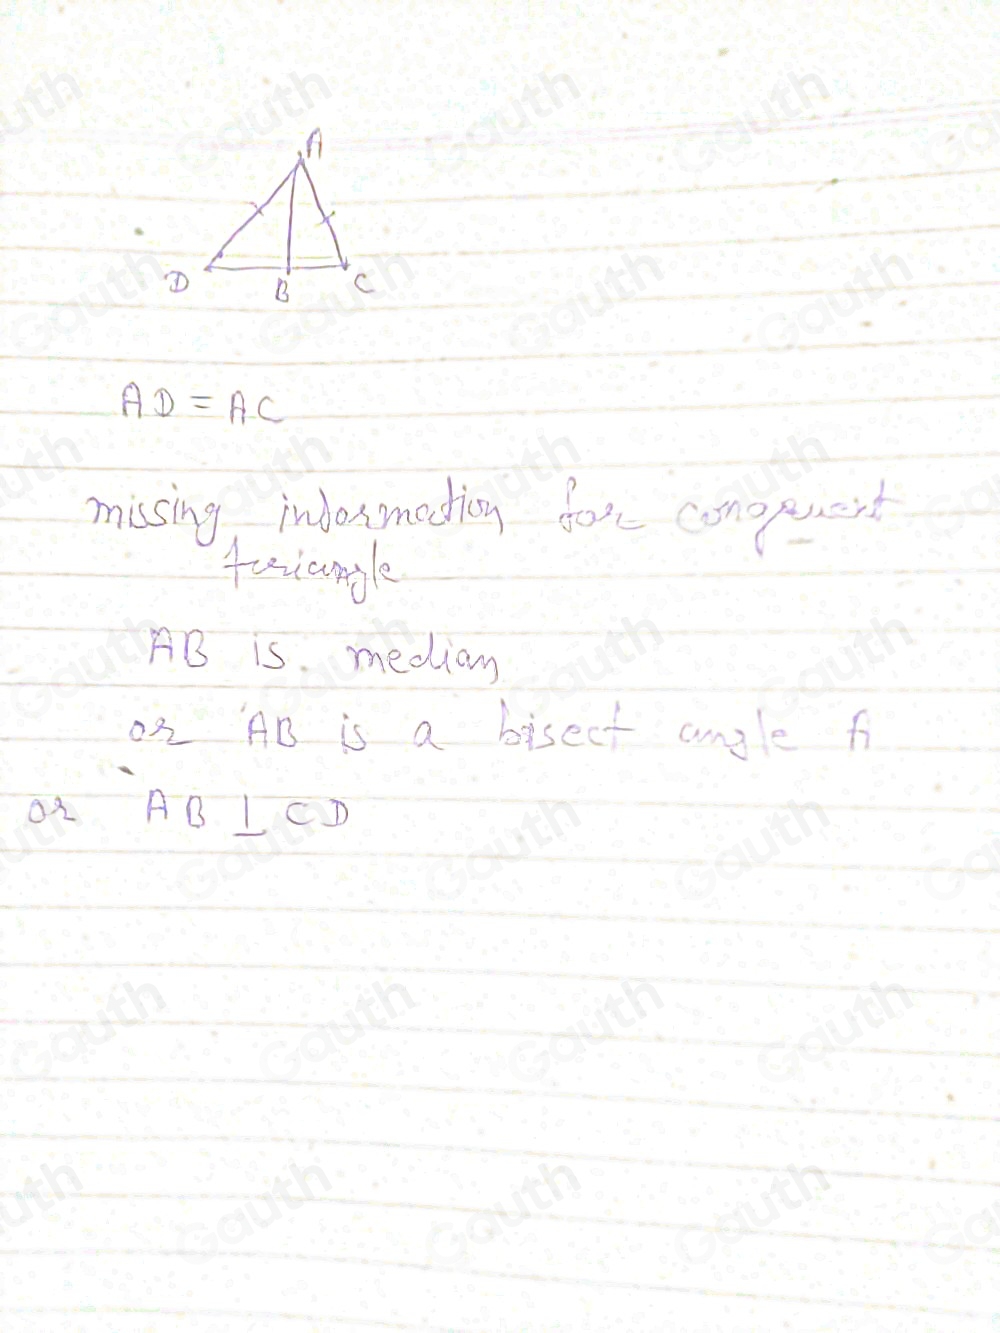 A
D
B
C
AD = AC
missing information for congruent
triangle
AB is median
or AB is a bisect angle A
or AB ⊥ CD